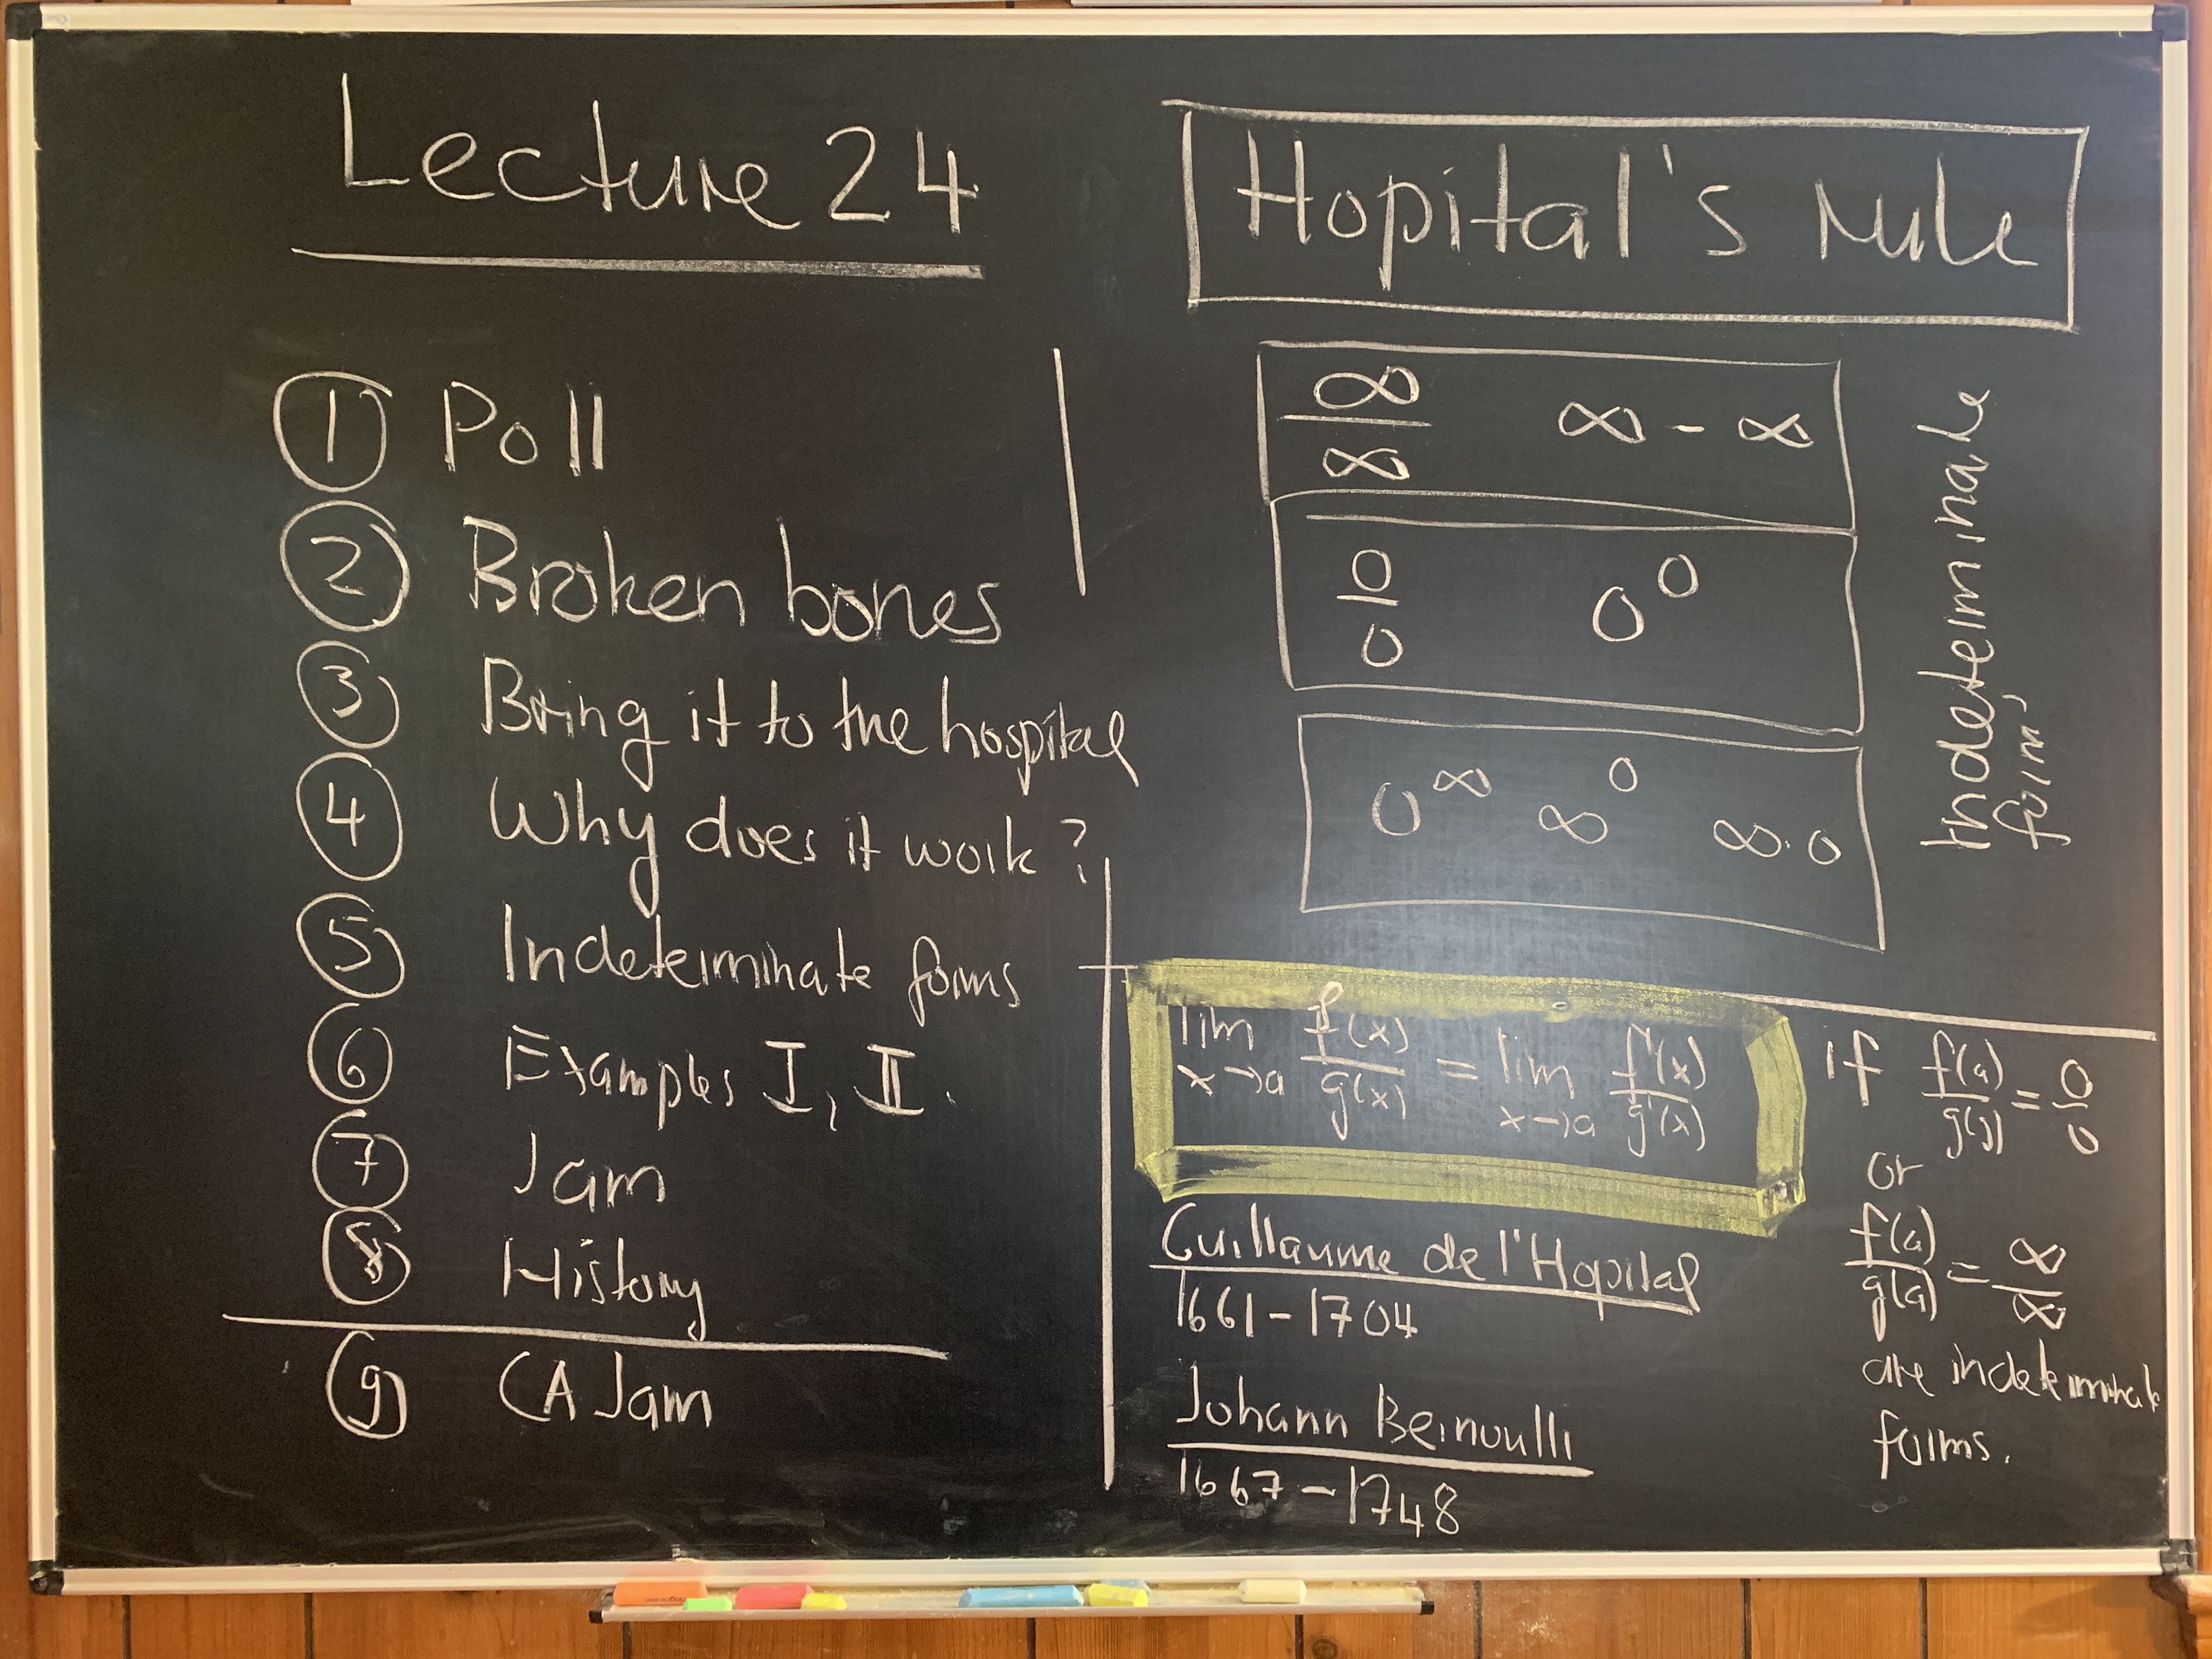 Lecture 24
① Poll
② Broken bones
③ Bring it to the hospital
④ Why does it work?
⑤ Indeterminate forms
⑥ Examples I, II.
⑦ Jam
⑧ History
⑨ CA Jam
Hopital's rule
∞/∞ ∞ - ∞
0/0 0^0
0^∞ ∞^0 ∞·0
Indeterminate
forms
lim x→a f(x)/g(x) = lim x→a f'(x)/g'(x)
if f(a)/g(a) = 0/0
or
f(a)/g(a) = ∞/∞
are indeterminate
forms.
Guillaume de l'Hopital
1661-1704
Johann Bernoulli
1667-1748